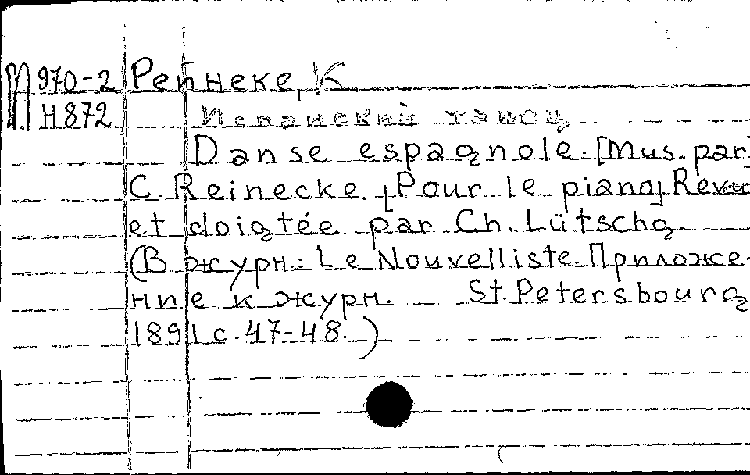 М 970-2 Рейнеке, К
Н872 Испанский танец
Danse espagnole. [Mus. par]
C. Reinecke. [Pour le piano] Revue
et doigtée par Ch. Lütschg.
(В журн: Le Nouvelliste. Приложе-
ние к журн. St Petersbourg
1891 с. 47-48.)